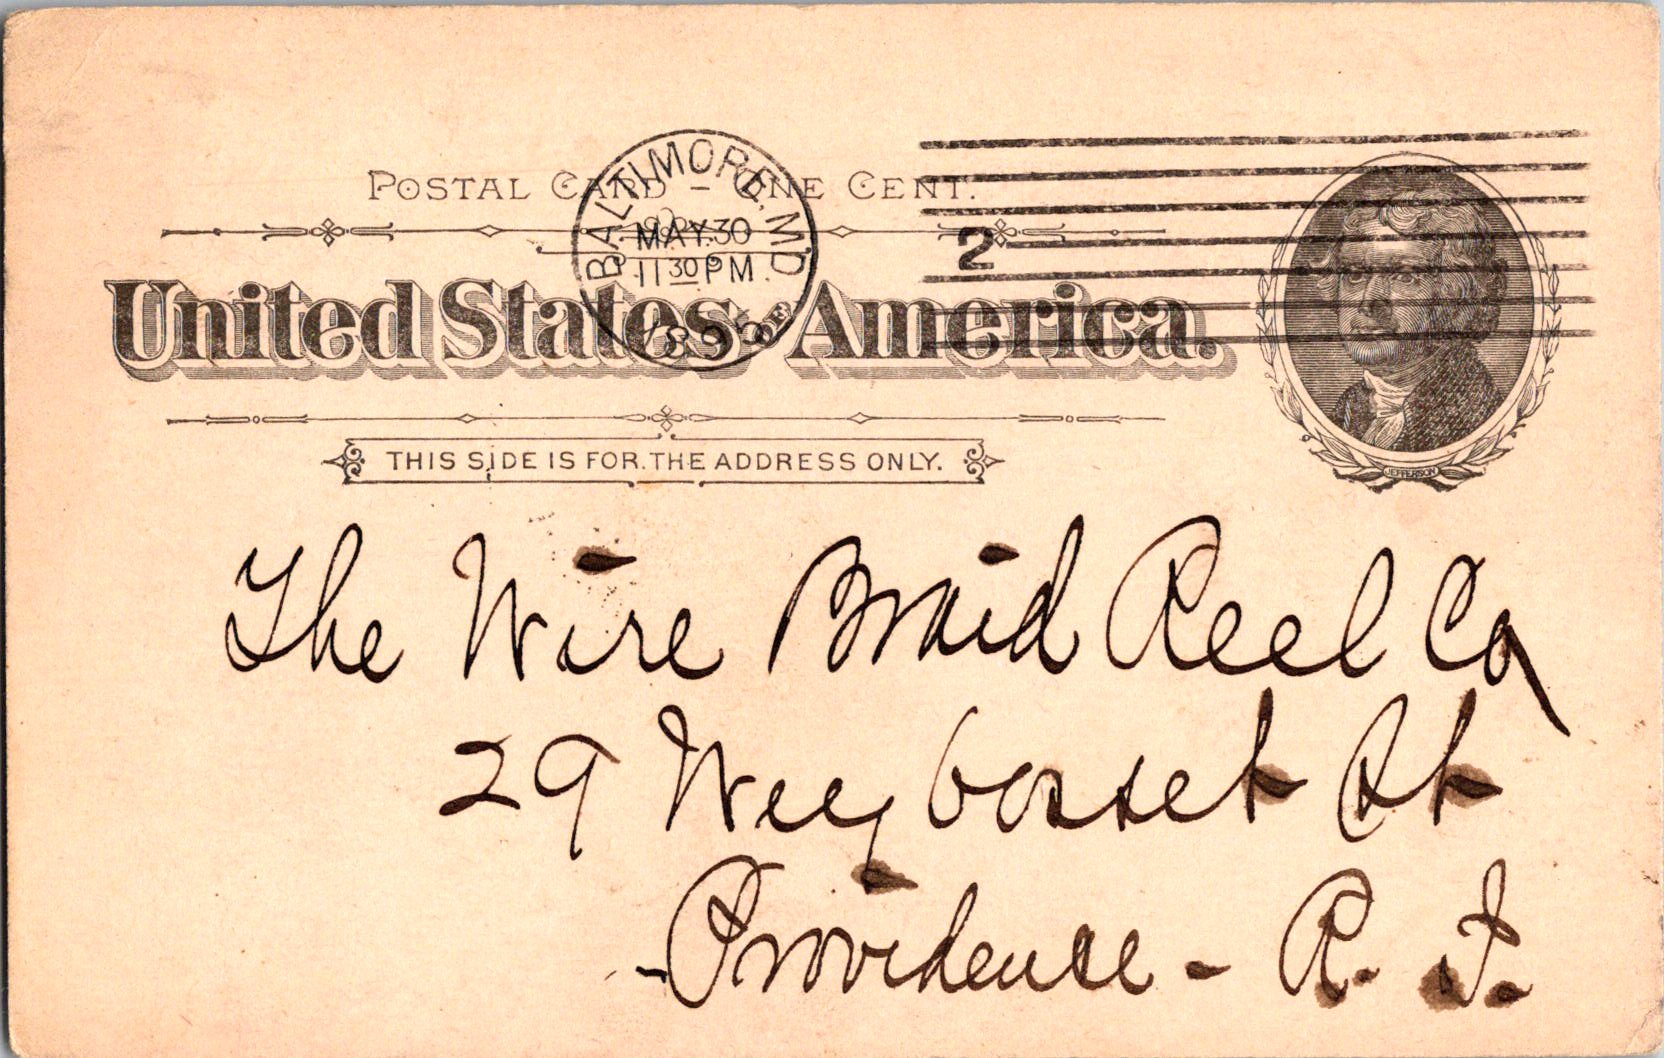 POSTAL CARD – ONE CENT.
BALTIMORE, MD.
MAY 30
11 30 PM
2
United States of America.
JEFFERSON
THIS SIDE IS FOR THE ADDRESS ONLY.
The Wire Braid Reel Co,
29 Weybosset St
Providence - R. I.